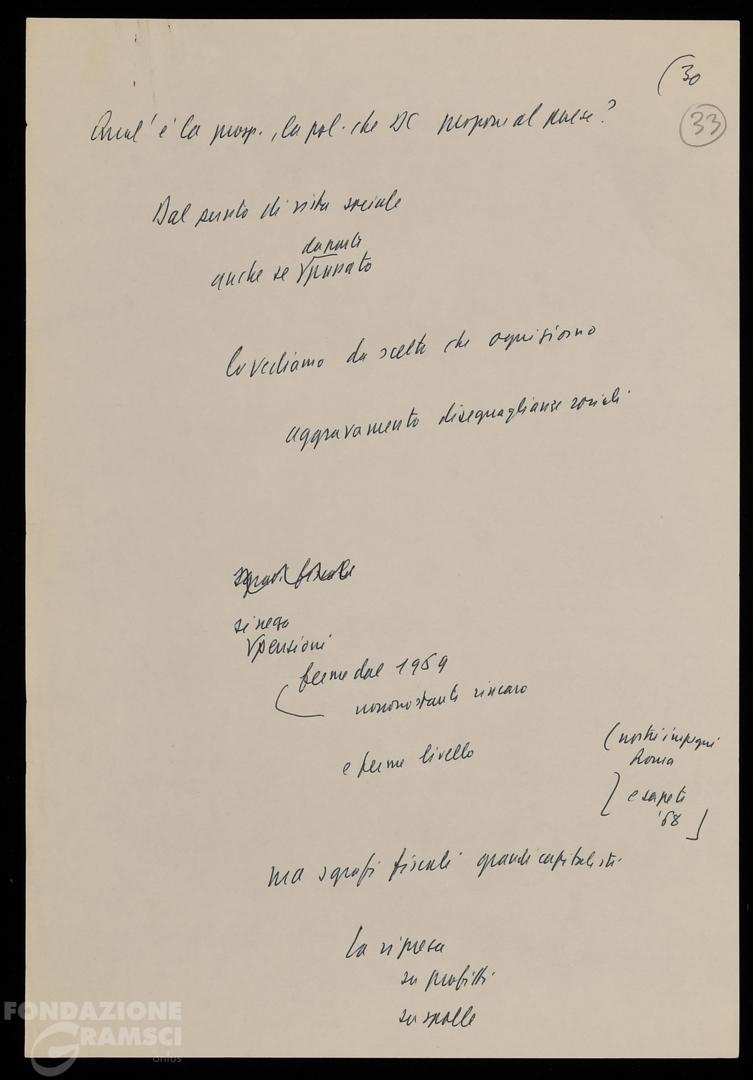 (30
33
Qual'è la prosp., la pol. che DC propone al paese?
Dal punto di vista sociale
da parte
anche se √ passato
lo vediamo da scelte che ogni giorno
aggravamento diseguaglianze sociali
sgravi fiscali
si nega
√ pensioni
ferme dal 1969
nonostante rincaro
e ferme livello
(nostri impegni
Roma
e sapete
'68
ma sgravi fiscali grandi capitalisti
la ripresa
su profitti
su spalle
FONDAZIONE
GRAMSCI
onlus